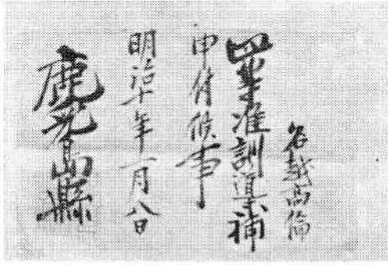 名越高倫
四等准訓導補
申付候事
明治十年一月八日
鹿児島縣